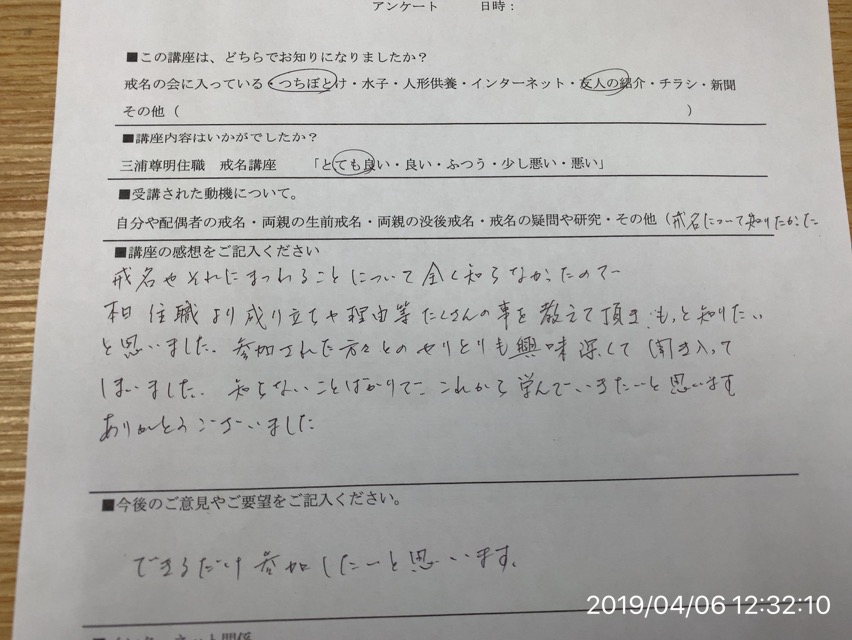 アンケート 日時：
■この講座は、どちらでお知りになりましたか？
戒名の会に入っている・つちぼとけ・水子・人形供養・インターネット・友人の紹介・チラシ・新聞
その他（ ）
■講座内容はいかがでしたか？
三浦尊明住職 戒名講座 「とても良い・良い・ふつう・少し悪い・悪い」
■受講された動機について。
自分や配偶者の戒名・両親の生前戒名・両親の没後戒名・戒名の疑問や研究・その他（戒名について知りたかった
■講座の感想をご記入ください
戒名やそれにまつわることについて全く知らなかったので
住職より成り立ちや理由等たくさんの事を教えて頂き、もっと知りたい
と思いました。参加された方々とのやりとりも興味深くて聞き入って
しまいました。知らないことばかりで、これから学んでいきたいと思います
ありがとうございました
■今後のご意見やご要望をご記入ください。
できるだけ参加したいと思います。
2019/04/06 12:32:10